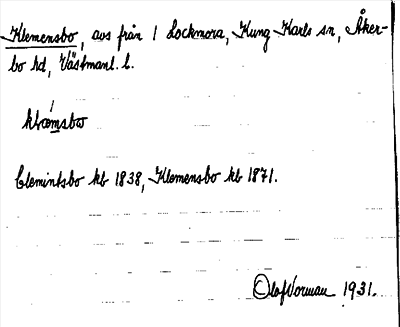 Klemensbo, avs från 1 Lockmora, Kung Karls sn, Åker-
bo hd, Västmanl. l.
klæmsbω
Clemintsbo kb 1838, Klemensbo kb 1871.
Olof Norman 1931.